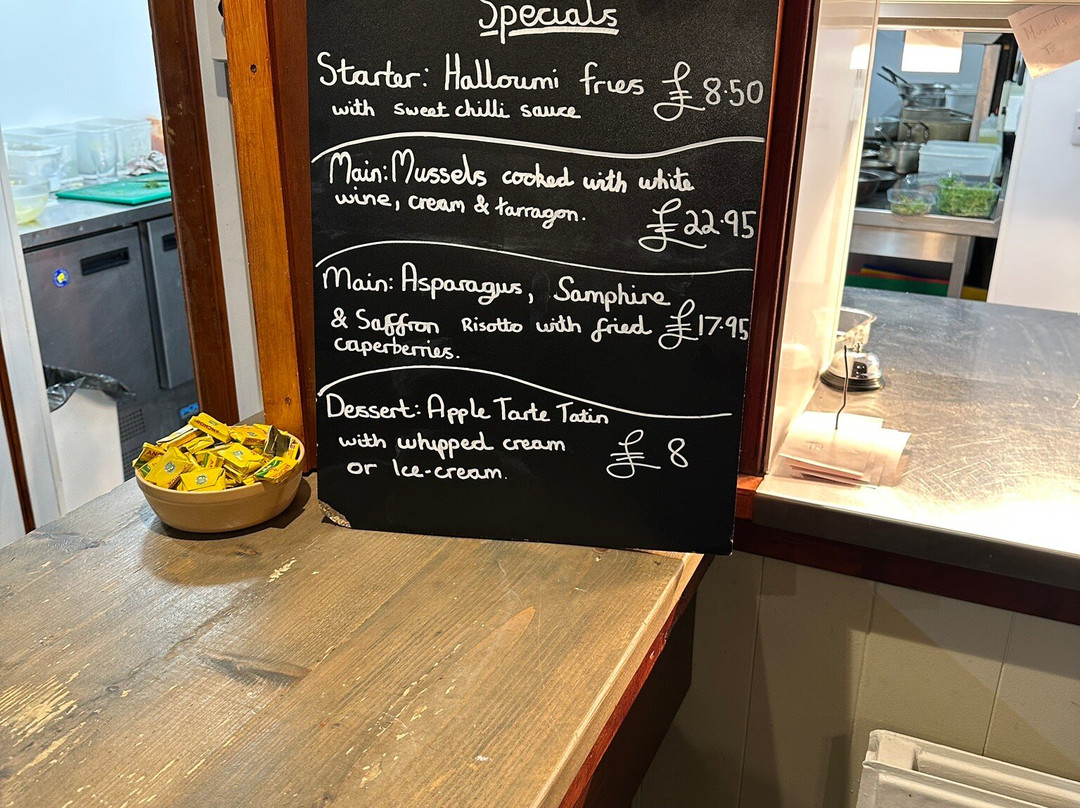 Specials
Starter: Halloumi fries £8.50
with sweet chilli sauce
Main: Mussels cooked with white
wine, cream & tarragon.
£22.95
Main: Asparagus, Samphire
& Saffron Risotto with fried £17.95
caperberries.
Dessert: Apple Tarte Tatin
with whypped cream £8
or Ice-cream.
Mussels